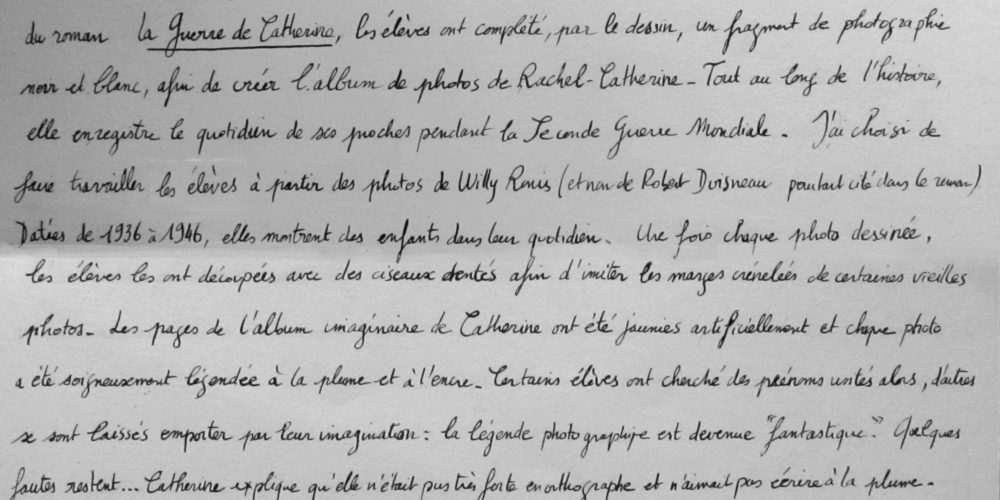 du roman La Guerre de Catherine, les élèves ont complété, par le dessin, un fragment de photographie
noir et blanc, afin de créer l'album de photos de Rachel-Catherine. Tout au long de l'histoire,
elle enregistre le quotidien de ses proches pendant la Seconde Guerre Mondiale. J'ai choisi de
faire travailler les élèves à partir des photos de Willy Ronis (et non de Robert Doisneau pourtant cité dans le roman)
Datées de 1936 à 1946, elles montrent des enfants dans leur quotidien. Une fois chaque photo dessinée,
les élèves les ont découpées avec des ciseaux dentés afin d'imiter les marges crénelées de certaines vieilles
photos. Les pages de l'album imaginaire de Catherine ont été jaunies artificiellement et chaque photo
a été soigneusement légendée à la plume et à l'encre. Certains élèves ont cherché des prénoms usités alors, d'autres
se sont laissés emporter par leur imagination : la légende photographique est devenue "fantastique". Quelques
fautes restent... Catherine explique qu'elle n'était pas très forte en orthographe et n'aimait pas écrire à la plume.